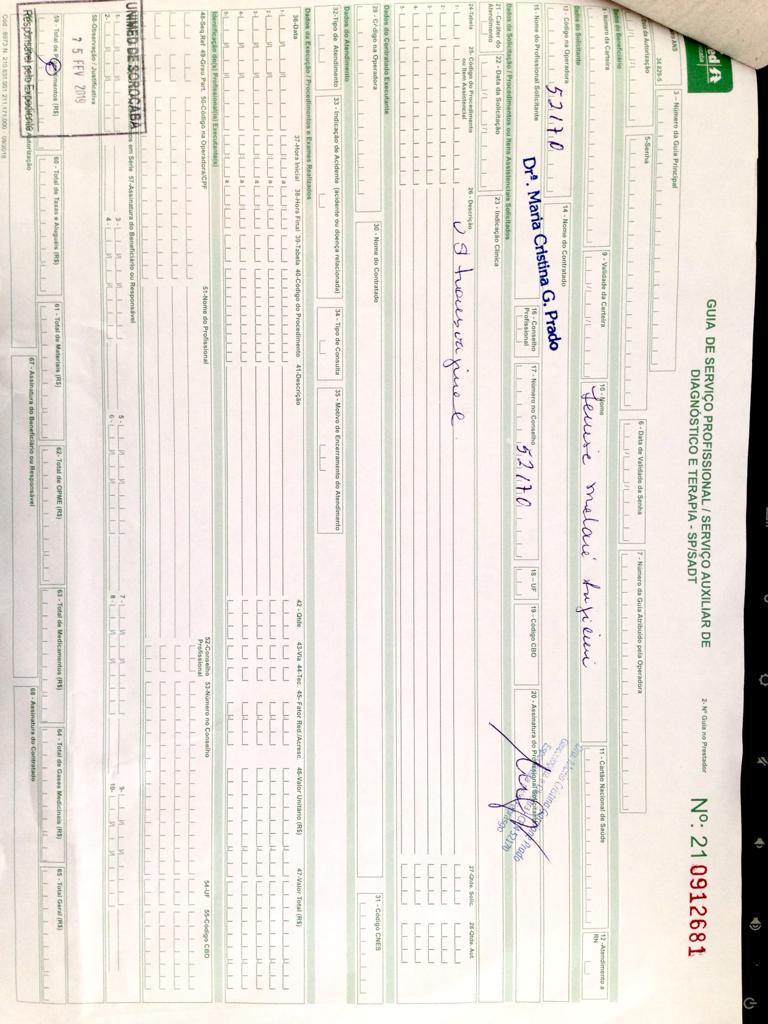 GUIA DE SERVIÇO PROFISSIONAL / SERVIÇO AUXILIAR DE
DIAGNÓSTICO E TERAPIA - SP/SADT
2- Nº Guia no Prestador
Nº: 210912681
3 - Número da Guia Principal
5-Senha
6 - Data de Validade da Senha
7 - Número da Guia Atribuído pela Operadora
Número da Carteira
9 - Validade da Carteira
10 - Nome
11 - Cartão Nacional de Saúde
12 - Atendimento a RN
13 - Código na Operadora
52170
14 - Nome do Contratado
15 - Nome do Profissional Solicitante
Drª. Maria Cristina G. Prado
16 - Conselho Profissional
17 - Número no Conselho
52170
18 - UF
19 - Código CBO
20 - Assinatura do Profissional Solicitante
Dados da Solicitação / Procedimentos ou Itens Assistenciais Solicitados
21- Caráter do Atendimento
22 - Data da Solicitação
23 - Indicação Clínica
24-Tabela
25- Código do Procedimento ou Item Assistencial
26 - Descrição
27-Qtde. Solic.
28-Qtde. Aut.
1-
US transvaginal
2-
3-
4-
5-
Dados do Contratado Executante
29 - Código na Operadora
30 - Nome do Contratado
31 - Código CNES
Dados do Atendimento
32-Tipo de Atendimento
33 - Indicação de Acidente (acidente ou doença relacionada)
34 - Tipo de Consulta
35 - Motivo de Encerramento do Atendimento
Dados da Execução / Procedimentos e Exames Realizados
36-Data
37-Hora Inicial
38-Hora Final
39-Tabela
40-Código do Procedimento
41-Descrição
42 - Qtde
43-Via
44-Tec.
45- Fator Red./Acresc.
46-Valor Unitário (R$)
47-Valor Total (R$)
Identificação do(s) Profissional(is) Executante(s)
48-Seq.Ref
49-Grau Part.
50-Código na Operadora/CPF
51-Nome do Profissional
52-Conselho Profissional
53-Número no Conselho
54-UF
55-Código CBO
57-Assinatura do Beneficiário ou Responsável
UNIMED DE SOROCABA
58-Observação / Justificativa
25 FEV 2019
60 - Total de Taxas e Aluguéis (R$)
61 - Total de Materiais (R$)
62- Total de OPME (R$)
63 - Total de Medicamentos (R$)
64 - Total de Gases Medicinais (R$)
65 - Total Geral (R$)
67 - Assinatura do Beneficiário ou Responsável
68 - Assinatura do Contratado